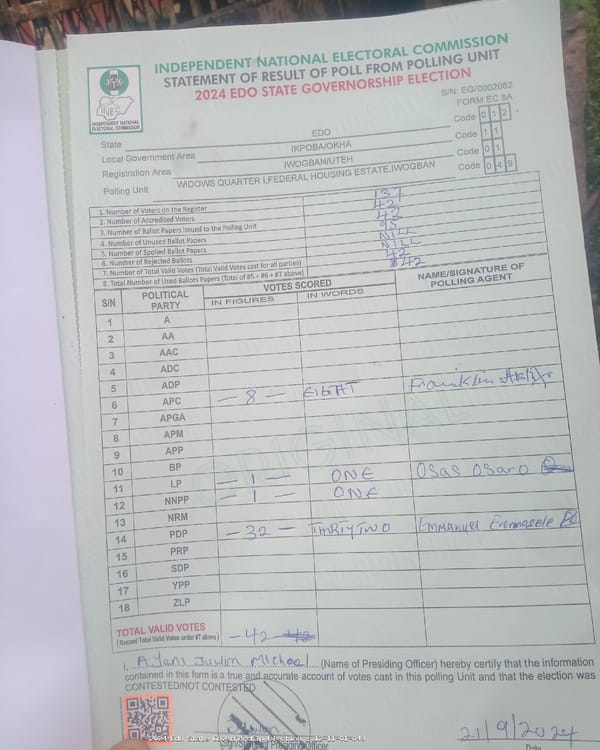 INDEPENDENT NATIONAL ELECTORAL COMMISSION
STATEMENT OF RESULT OF POLL FROM POLLING UNIT
2024 EDO STATE GOVERNORSHIP ELECTION
INEC
INDEPENDENT NATIONAL ELECTORAL COMMISSION
S/N: EG/0002062
FORM EC 8A
State EDO Code 0 1 2
Local Government Area IKPOBA/OKHA Code 1 1
Registration Area IWOGBAN/UTEH Code 0 1
Polling Unit WIDOWS QUARTER I,FEDERAL HOUSING ESTATE,IWOGBAN Code 0 4 9
1. Number of Voters on the Register 137
2. Number of Accredited Voters 42
3. Number of Ballot Papers Issued to the Polling Unit 42
4. Number of Unused Ballot Papers 95
5. Number of Spoiled Ballot Papers NILL
6. Number of Rejected Ballots NILL
7. Number of Total Valid Votes (Total Valid Votes cast for all parties) 42
8. Total Number of Used Ballots Papers (Total of #5 + #6 + #7 above) 42
S/N POLITICAL PARTY VOTES SCORED NAME/SIGNATURE OF POLLING AGENT
IN FIGURES IN WORDS
1 A
2 AA
3 AAC
4 ADC
5 ADP
6 APC - 8 - EIGHT Franklin
7 APGA
8 APM
9 APP
10 BP
11 LP - 1 - ONE Osas Osaro
12 NNPP - 1 - ONE
13 NRM
14 PDP - 32 - THIRTY TWO Emmanuel
15 PRP
16 SDP
17 YPP
18 ZLP
ORIGINAL
TOTAL VALID VOTES - 42 - 42
(Record Total Valid Votes under #7 above)
I, Ayani Juwon Michael (Name of Presiding Officer) hereby certify that the information
contained in this form is a true and accurate account of votes cast in this polling Unit and that the election was
CONTESTED/NOT CONTESTED
21/9/2024
Presiding Officer
Date